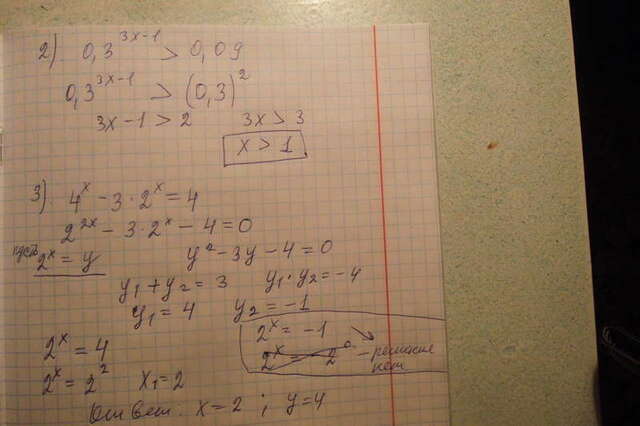 2). 0,3^(3x-1) > 0,09
0,3^(3x-1) > (0,3)^2
3x-1 > 2 3x > 3
x > 1
3). 4^x - 3 · 2^x = 4
2^(2x) - 3 · 2^x - 4 = 0
пусть 2^x = y y² - 3y - 4 = 0
y₁ + y₂ = 3 y₁ · y₂ = -4
y₁ = 4 y₂ = -1
2^x = 4 2^x = -1
2^x = 2^2 x₁ = 2 2^x = -2^0 - решения нет
Ответ. x = 2 ; y = 4